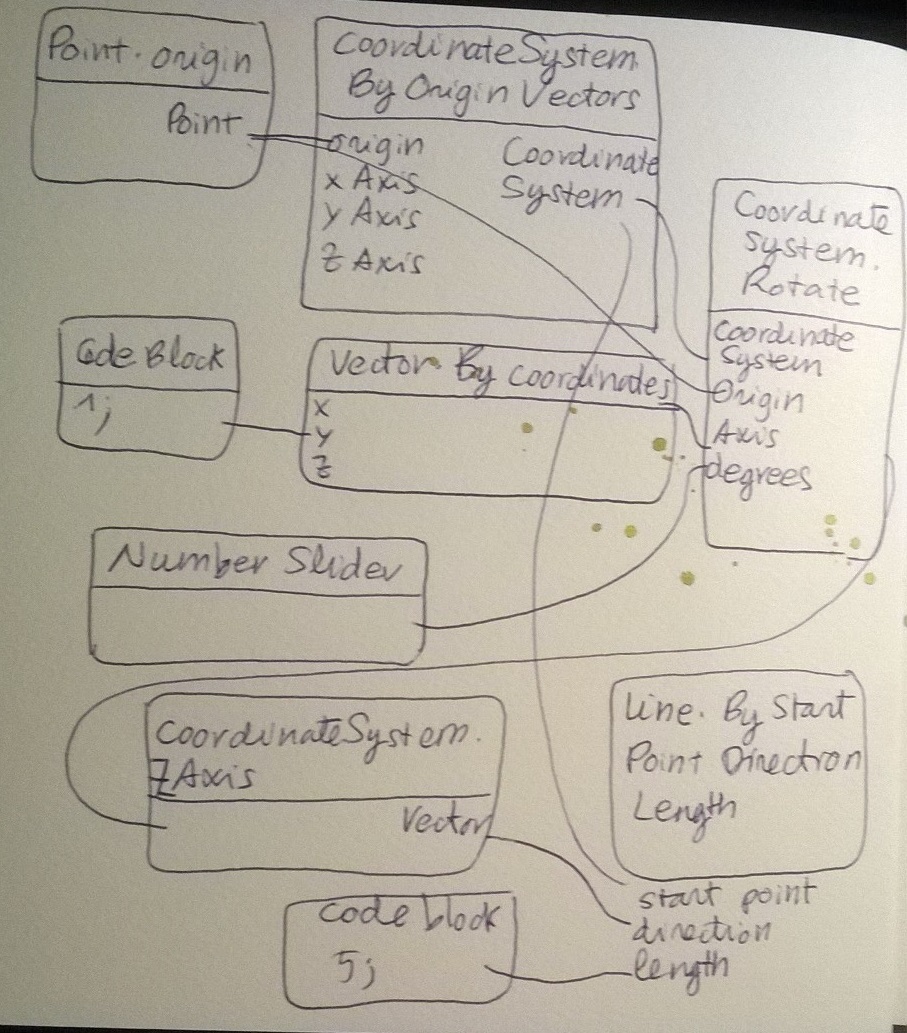 Point. Origin
Point
CoordinateSystem
By Origin Vectors
origin
x Axis
y Axis
Z Axis
Coordinate
System
Coordinate
System.
Rotate
Coordinate
System
Origin
Axis
degrees
Code Block
1;
Vector. By Coordinates
X
Y
Z
Number Slider
CoordinateSystem.
ZAxis
Vector
Line. By Start
Point Direction
Length
start point
direction
length
Code block
5;